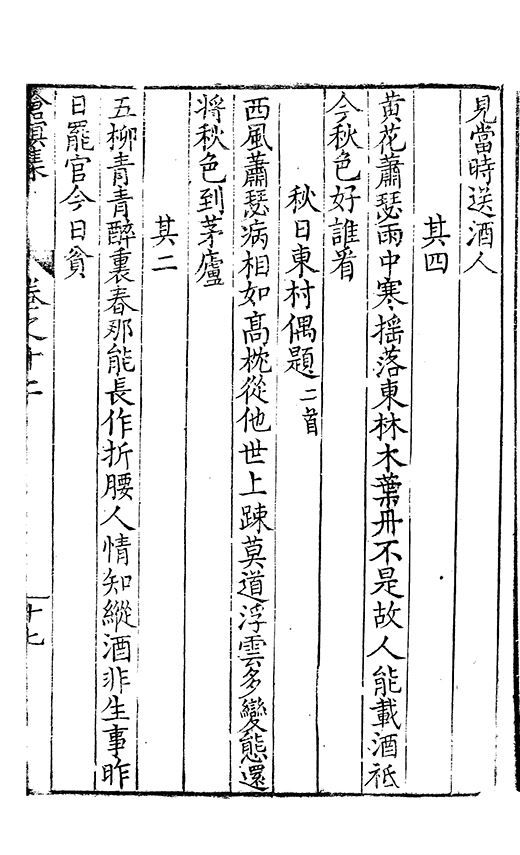 見當時送酒人
其四
黄花蕭瑟雨中寒摇落東林木葉丹不是故人能載酒祗
今秋色好誰看
秋日東村偶題二首
西風蕭瑟病相如高枕從他世上踈莫道浮雲多變態還
將秋色到茅廬
其二
五柳青青醉裏春那能長作折腰人情知縱酒非生事昨
日罷官今日貧
滄溟集
卷之十二
十七